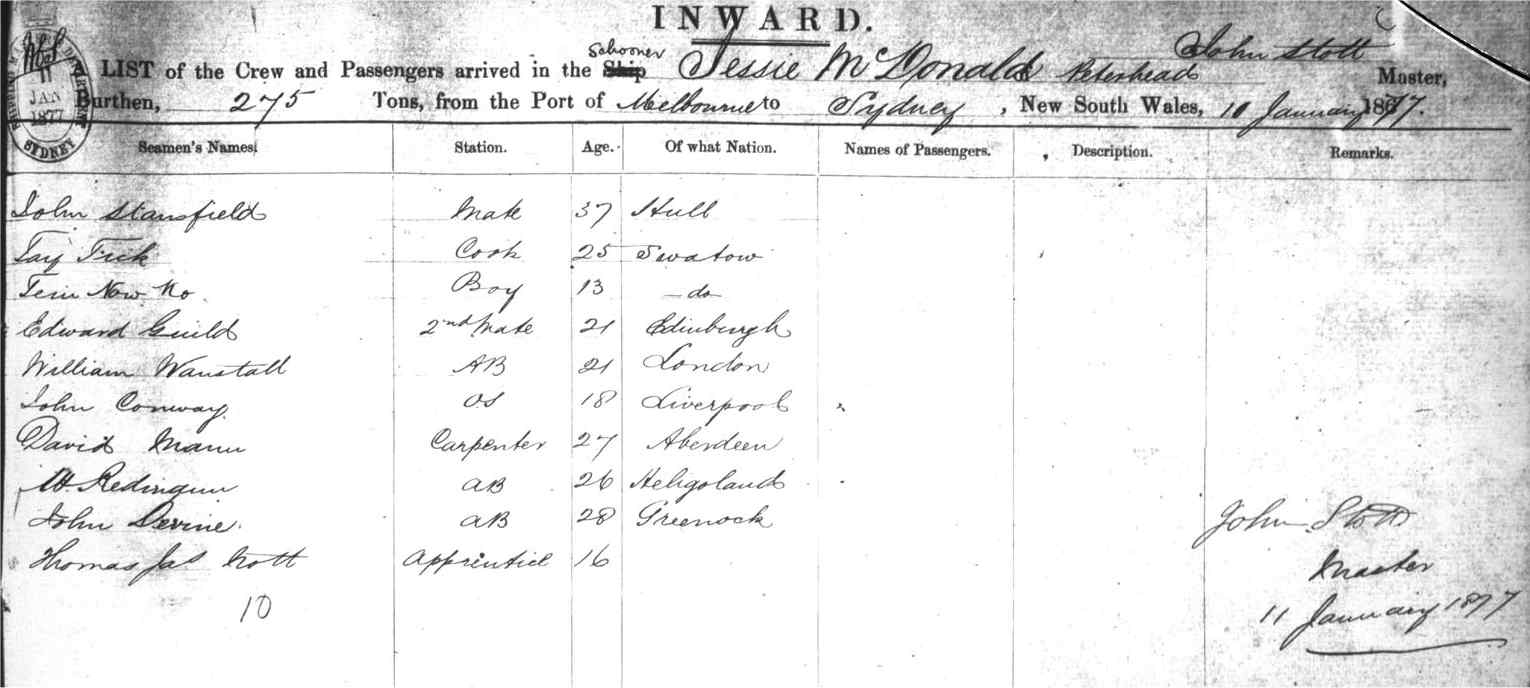 INWARD.
LIST of the Crew and Passengers arrived in the Ship Schooner Jessie McDonald Peterhead John Stott Master,
Burthen, 275 Tons, from the Port of Melbourne to Sydney, New South Wales, 10 January 1877.
11 JAN 1877 SYDNEY
Seamen's Names. Station. Age. Of what Nation. Names of Passengers. Description. Remarks.
John Stansfield Mate 37 Hull
Tay Frik Cook 25 Swatow
Tein Now Ko Boy 13 do
Edward Guild 2nd Mate 21 Edinburgh
William Wanstall AB 21 London
John Conway OS 18 Liverpool
David Mann Carpenter 27 Aberdeen
AB 26 Heligoland
John Devine AB 28 Greenock
Thomas Jas Apprentice 16
10
John Stott
Master
11 January 1877